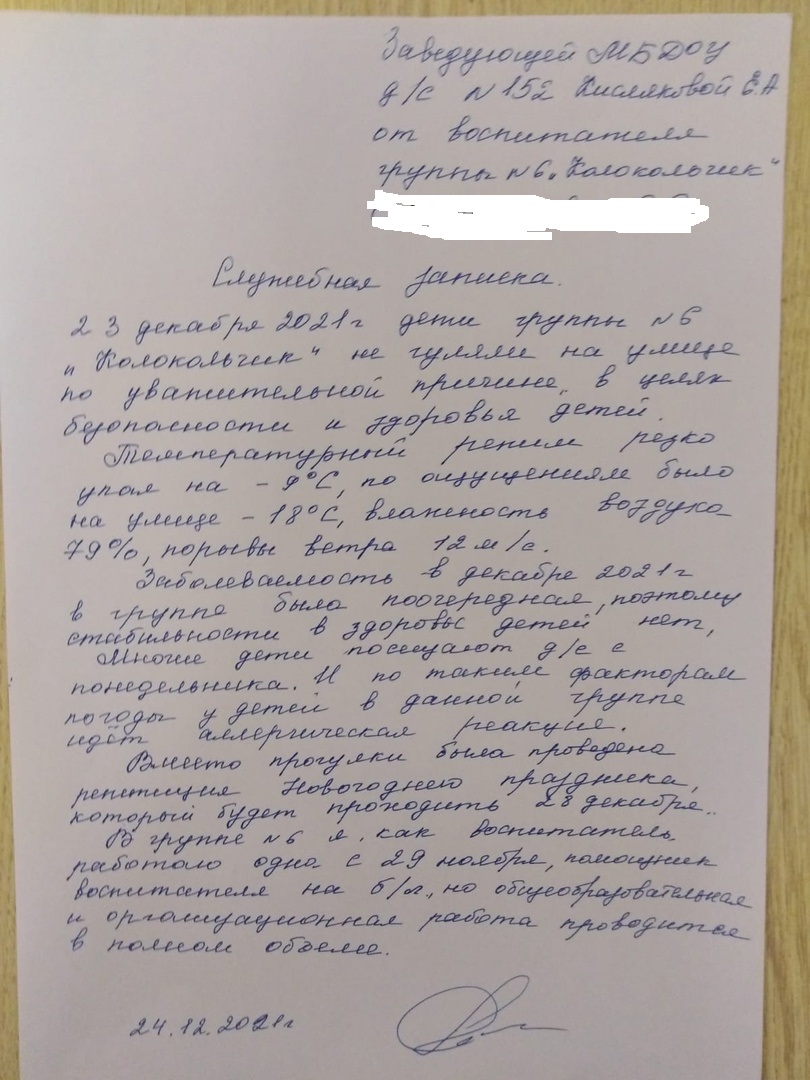 Заведующей МБДОУ
д/с №152 Кисляковой Е.А
от воспитателя
группы №6 „Колокольчик"
Служебная записка.
23 декабря 2021г дети группы №6
„Колокольчик" не гуляли на улице
по уважительной причине, в целях
безопасности и здоровья детей.
Температурный режим резко
упал на -9°С, по ощущениям было
на улице -18°С, влажность воздуха
79%, порывы ветра 12 м/с.
Заболеваемость в декабре 2021г
в группе была поочередная, поэтому
стабильности в здоровье детей нет,
Многие дети посещают д/с с
понедельника. И по таким факторам
погоды у детей в данной группе
идёт аллергическая реакция.
Вместо прогулки была проведена
репетиция Новогоднего праздника,
который будет проходить 28 декабря..
В группе №6 я, как воспитатель
работаю одна с 29 ноября, помощник
воспитателя на б/л, но общеобразовательная
и организационная работа проводится
в полном объеме.
24.12.2021г